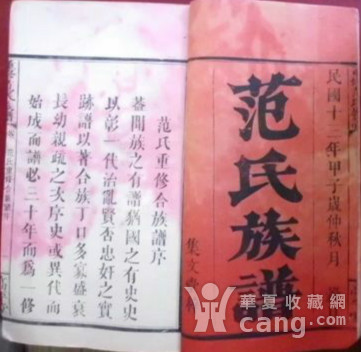 民國十三年甲子歲仲秋月
范氏族譜
集文堂
范氏重修合族譜序
蓋聞族之有譜猶國之有史史
以彰一代治亂賢否忠奸之實
跡譜以著合族丁口多寡盛衰
長幼親疏之次序史或異代而
始成而譜必三十年而爲一修
華夏收藏網
cang.com